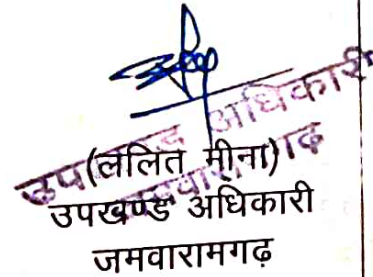 उपखण्ड अधिकारी
(ललित मीना)
उपखण्ड अधिकारी
जमवारामगढ़